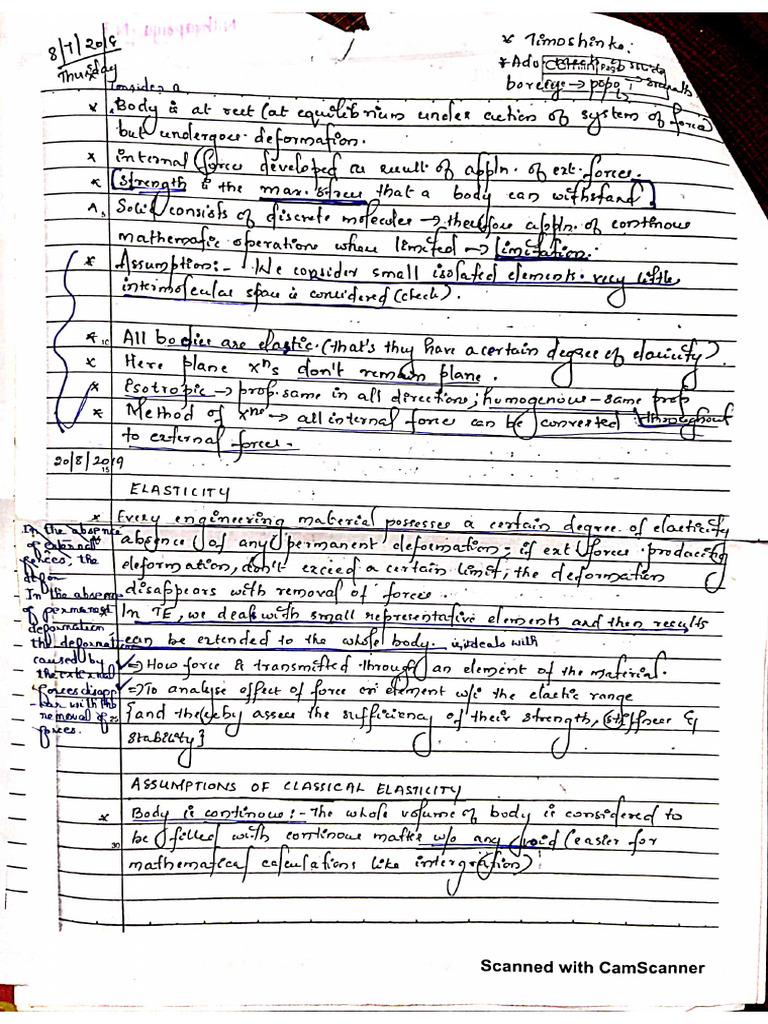 8/7/2019
Thursday
* Timoshinko:
* Adv
boreye → popo
Consider a
* Body is at rest (at equilibrium under action of system of force)
but undergoes deformation.
* internal force developed as result of appln. of ext. forces.
* [Strength is the max. stress that a body can withstand]
A5 Solid consists of discrete molecules → therefore appln. of continous
mathematic operations where limited → limitation.
* Assumption:- We consider small isolated elements. very little
intermolecular span is considered (check).
* 10 All bodies are elastic. (that's they have a certain degree of elasticity)
* Here plane xⁿs don't remain plane.
* Isotropic → prop. same in all directions; homogenous - same prop
throughout
* Method of xⁿˢ → all internal force can be converted
to external forces.
20/8/2019
15
ELASTICITY
* Every engineering material possesses a certain degree of elasticity
absence of any permanent deformation; if ext force producing
deformation, don't exceed a certain limit, the deformation
disappears with removal of forces.
In the absence
of external
forces, the
defon
In the absence
of permanent
deformation
the deformation
caused by
the external
forces disapp
-ear with the
removal of
forces.
* In TE, we deal with small representative elements and then results
can be extended to the whole body. it deals with
✓ ⇒ How force is transmitted through an element of the material.
✓ ⇒ To analyse effect of force on element w/i the elastic range
20 {and thereby assess the sufficiency of their strength, stiffness &
stability}
ASSUMPTIONS OF CLASSICAL ELASTICITY
* Body is continous:- The whole volume of body is considered to
30 be filled with continous matter w/o any void (easier for
mathematical calculations like intergration)
Scanned with CamScanner